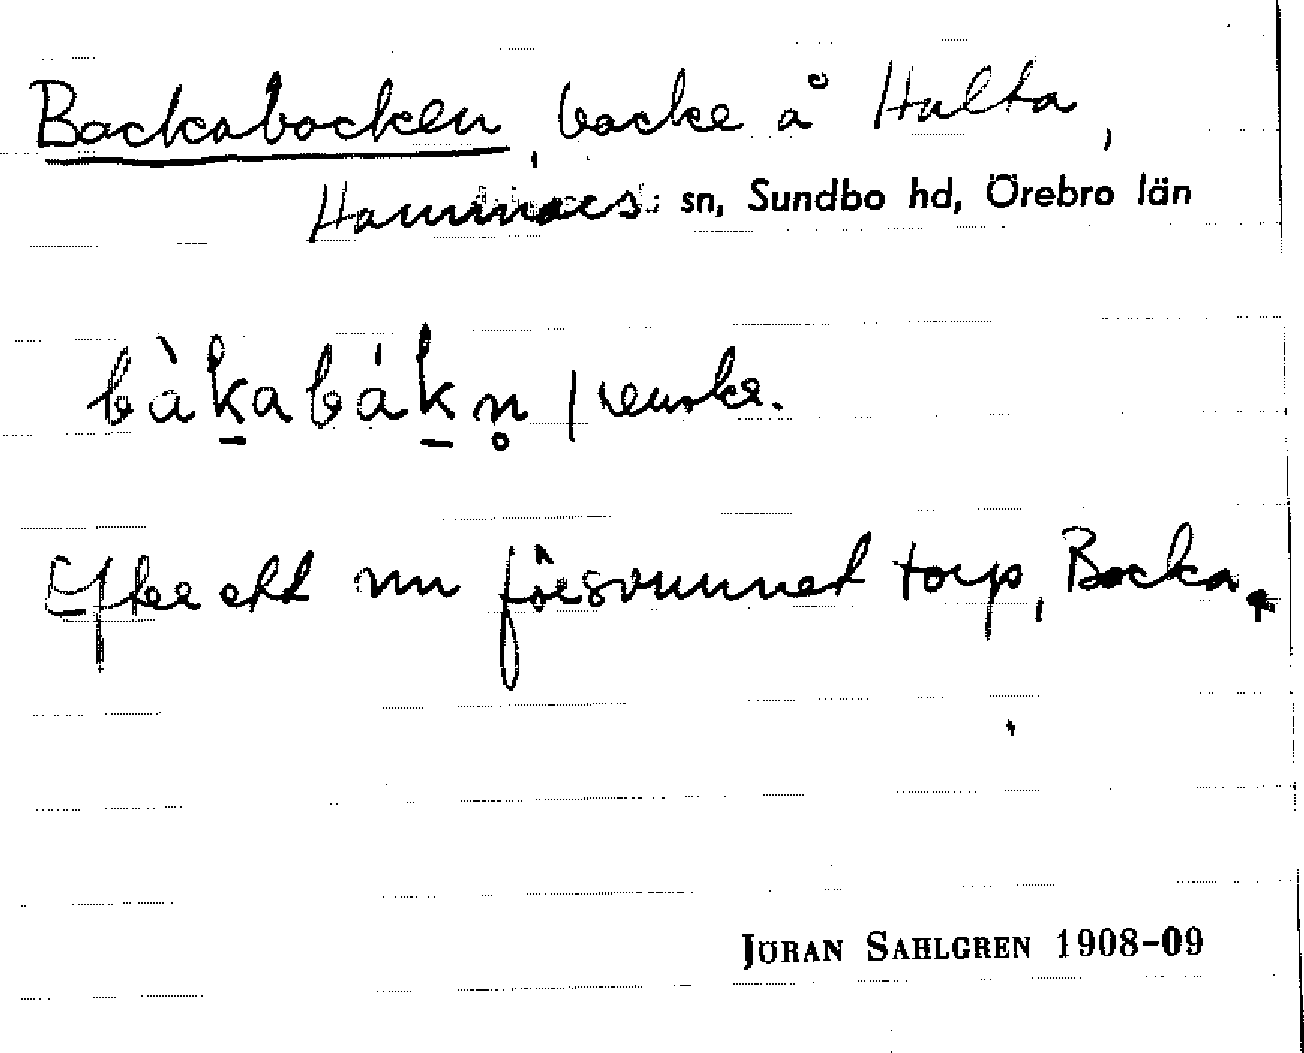 Backabacken, backe å Halta,
Hammars sn, Sundbo hd, Örebro län
bàk̠abák̠n̥ |
Efter ett nu försvunnet torp, Backa.
JÖRAN SAHLGREN 1908-09